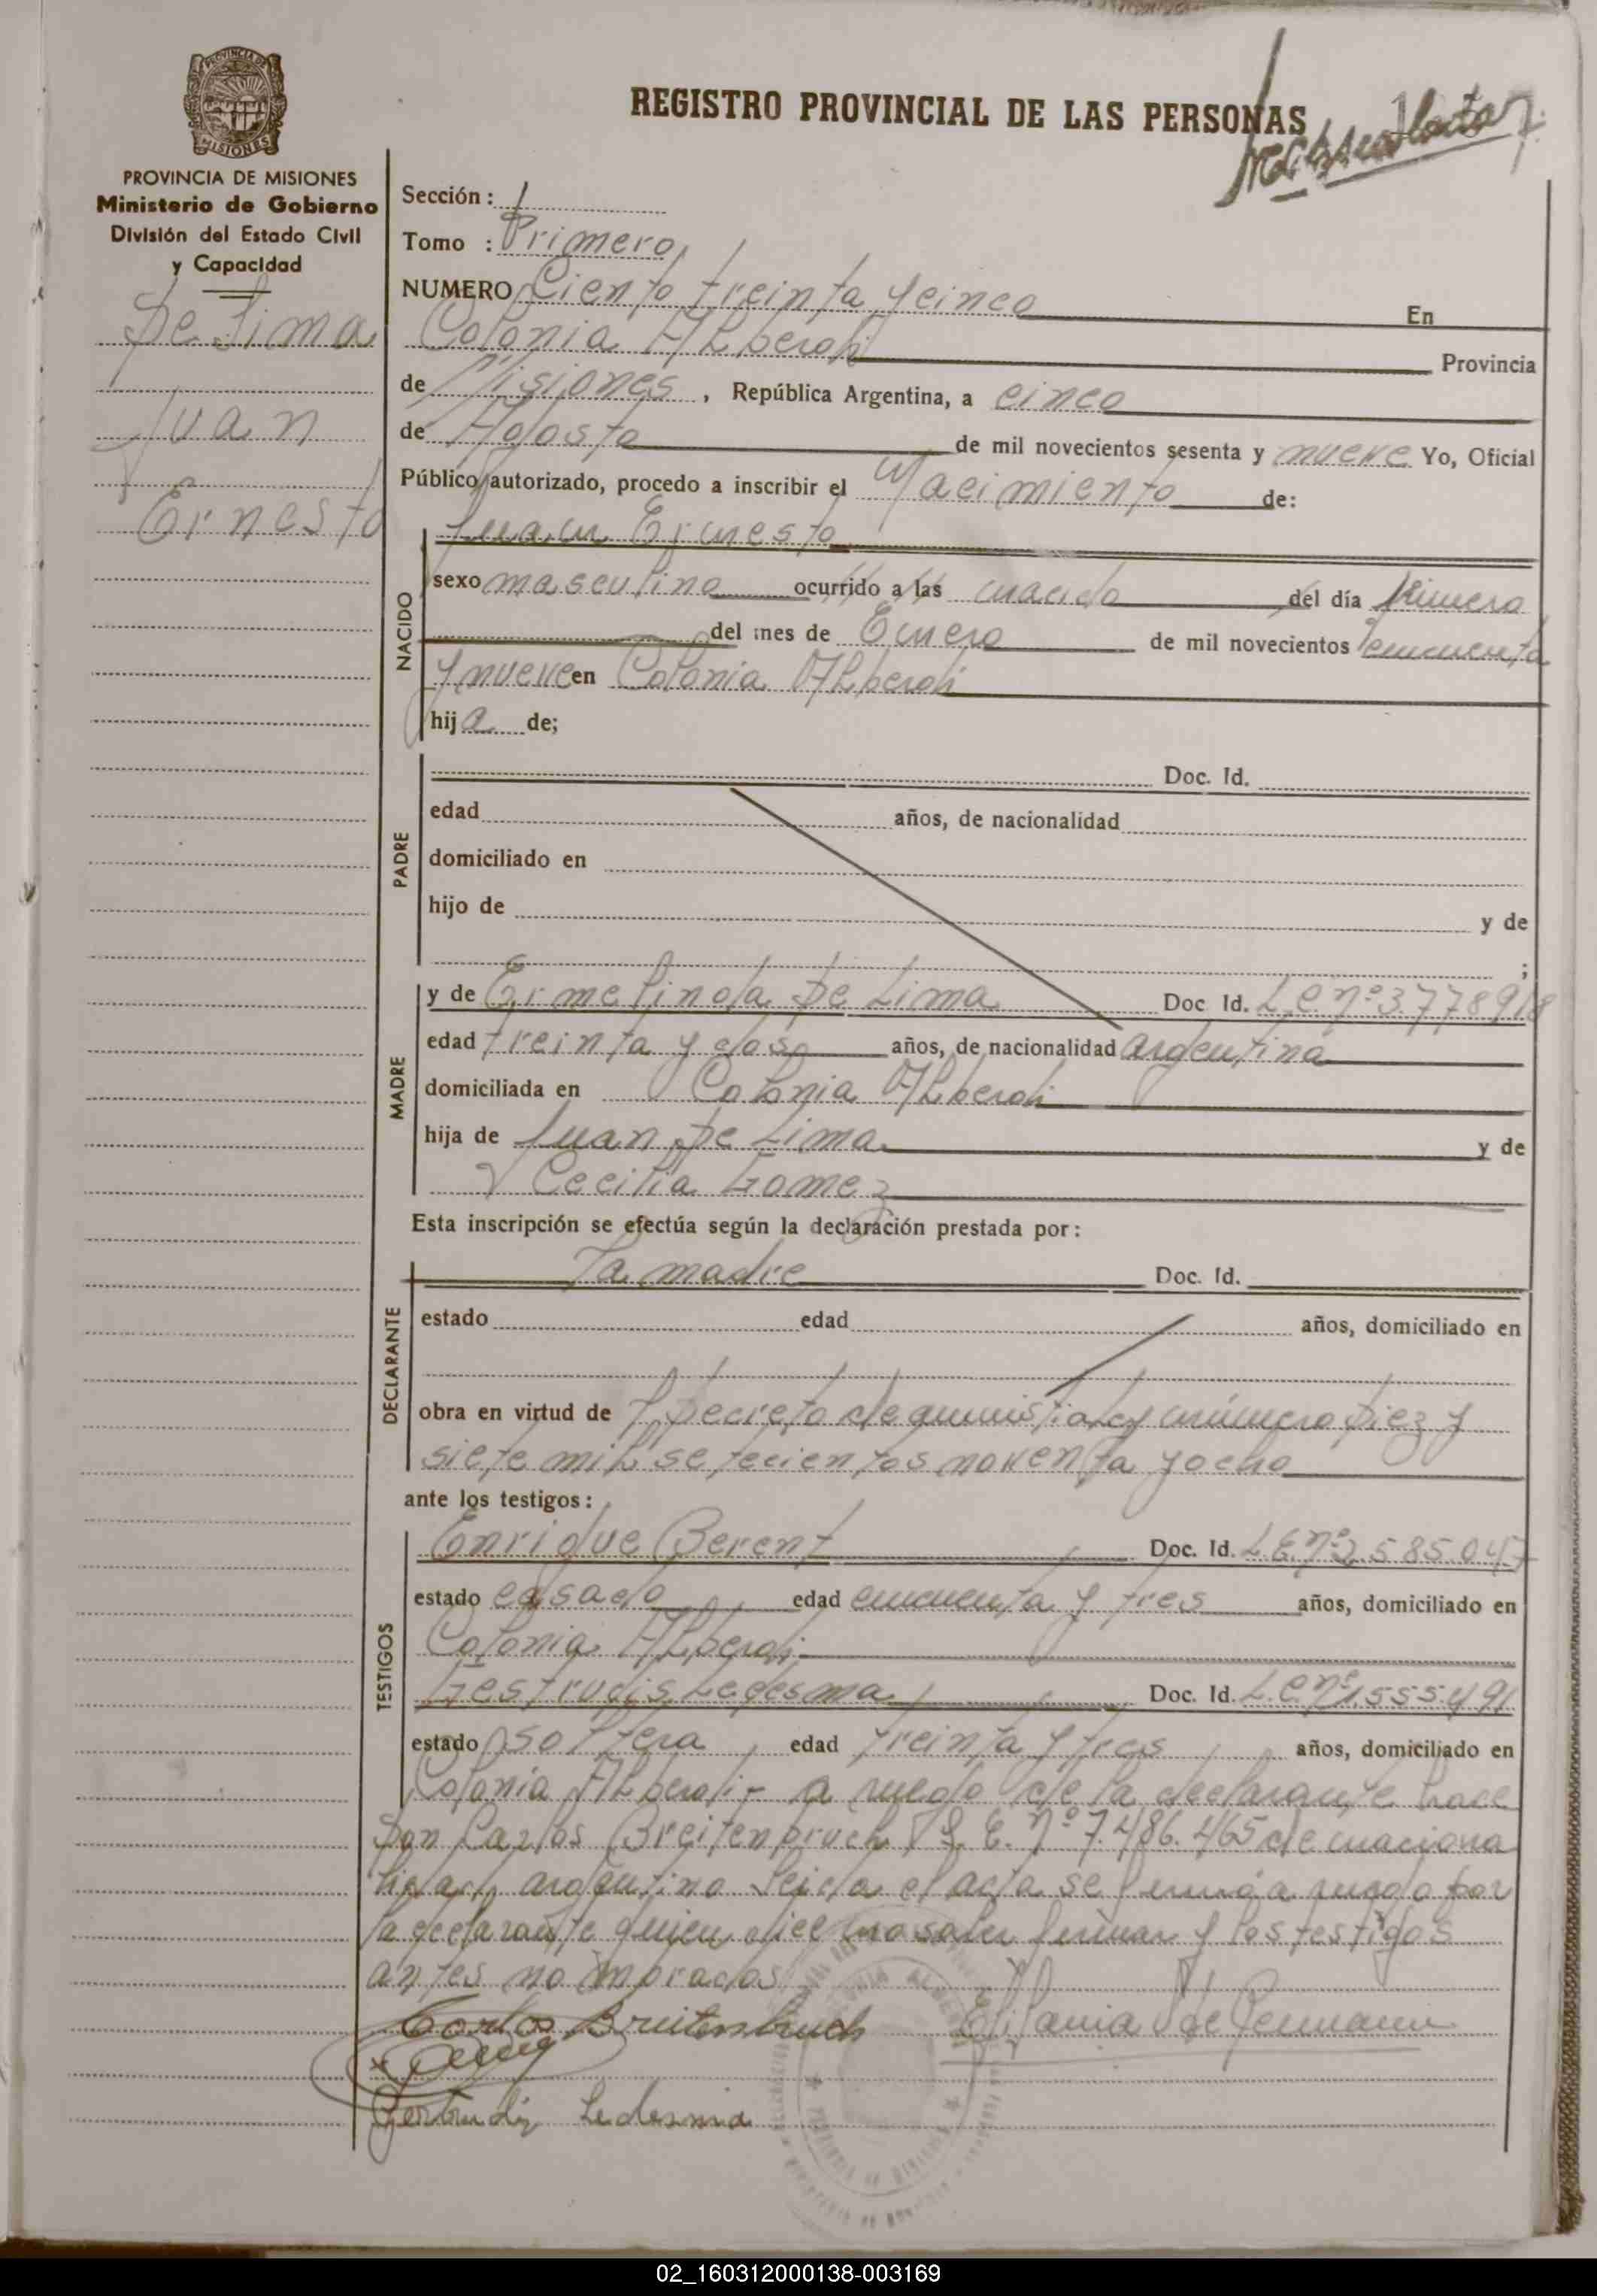 REGISTRO PROVINCIAL DE LAS PERSONAS
PROVINCIA DE MISIONES
Ministerio de Gobierno
División del Estado Civil
y Capacidad
De Lima
Juan
Ernesto
Sección:
Tomo : Primero
NUMERO Ciento treinta y cinco En
Colonia Alberdi Provincia
de Misiones, República Argentina, a cinco
de Agosto de mil novecientos sesenta y nueve Yo, Oficial
Público autorizado, procedo a inscribir el Nacimiento de:
NACIDO
Juan Ernesto
sexo masculino ocurrido a las del día Primero
del mes de Enero de mil novecientos cincuenta
y nueve en Colonia Alberdi
hija de;
PADRE
Doc. Id.
edad años, de nacionalidad
domiciliado en
hijo de y de
;
MADRE
y de Ermelinda De Lima Doc Id. L.C. nº 3.778918
edad treinta y dos años, de nacionalidad argentina
domiciliada en Colonia Alberdi
hija de Juan De Lima y de
Cecilia Gomez
Esta inscripción se efectúa según la declaración prestada por:
DECLARANTE
La madre Doc. Id.
estado edad años, domiciliado en
obra en virtud de Decreto número Diez y
siete mil setecientos noventa y ocho
ante los testigos:
TESTIGOS
Enrique Berent Doc. Id. L.E. nº 2.585.047
estado casado edad cincuenta y tres años, domiciliado en
Colonia Alberdi
Gestrudis Ledesma Doc. Id. L.C. nº 1.555.491
estado soltera edad treinta y tres años, domiciliado en
Colonia Alberdi - a ruego de la declarante hace
Don Carlos Breitenbruch L.E. nº 7.486.465 de naciona
lidad argentino Leida el acta se firmó a ruego por
la declarante quien dice no saber firmar y los testigos
antes nombrados
Carlos Breitenbruch
Gertrudis Ledesma
02_160312000138-003169